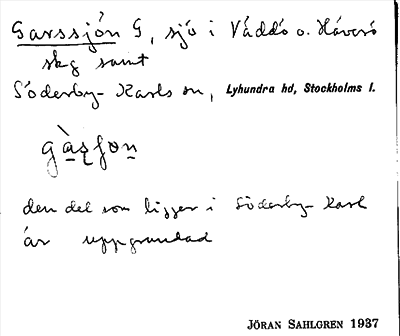 Garssjön G, sjö i Väddö o. Häverö
skg samt
Söderby-Karls sn, Lyhundra hd, Stockholms l.
gàṣʃǫn
den del som ligger i Söderby-Karl
är uppgrundad
JÖRAN SAHLGREN 1937